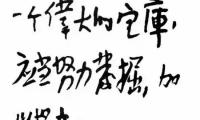 一个偉大的宝庫，
应当努力发掘，加